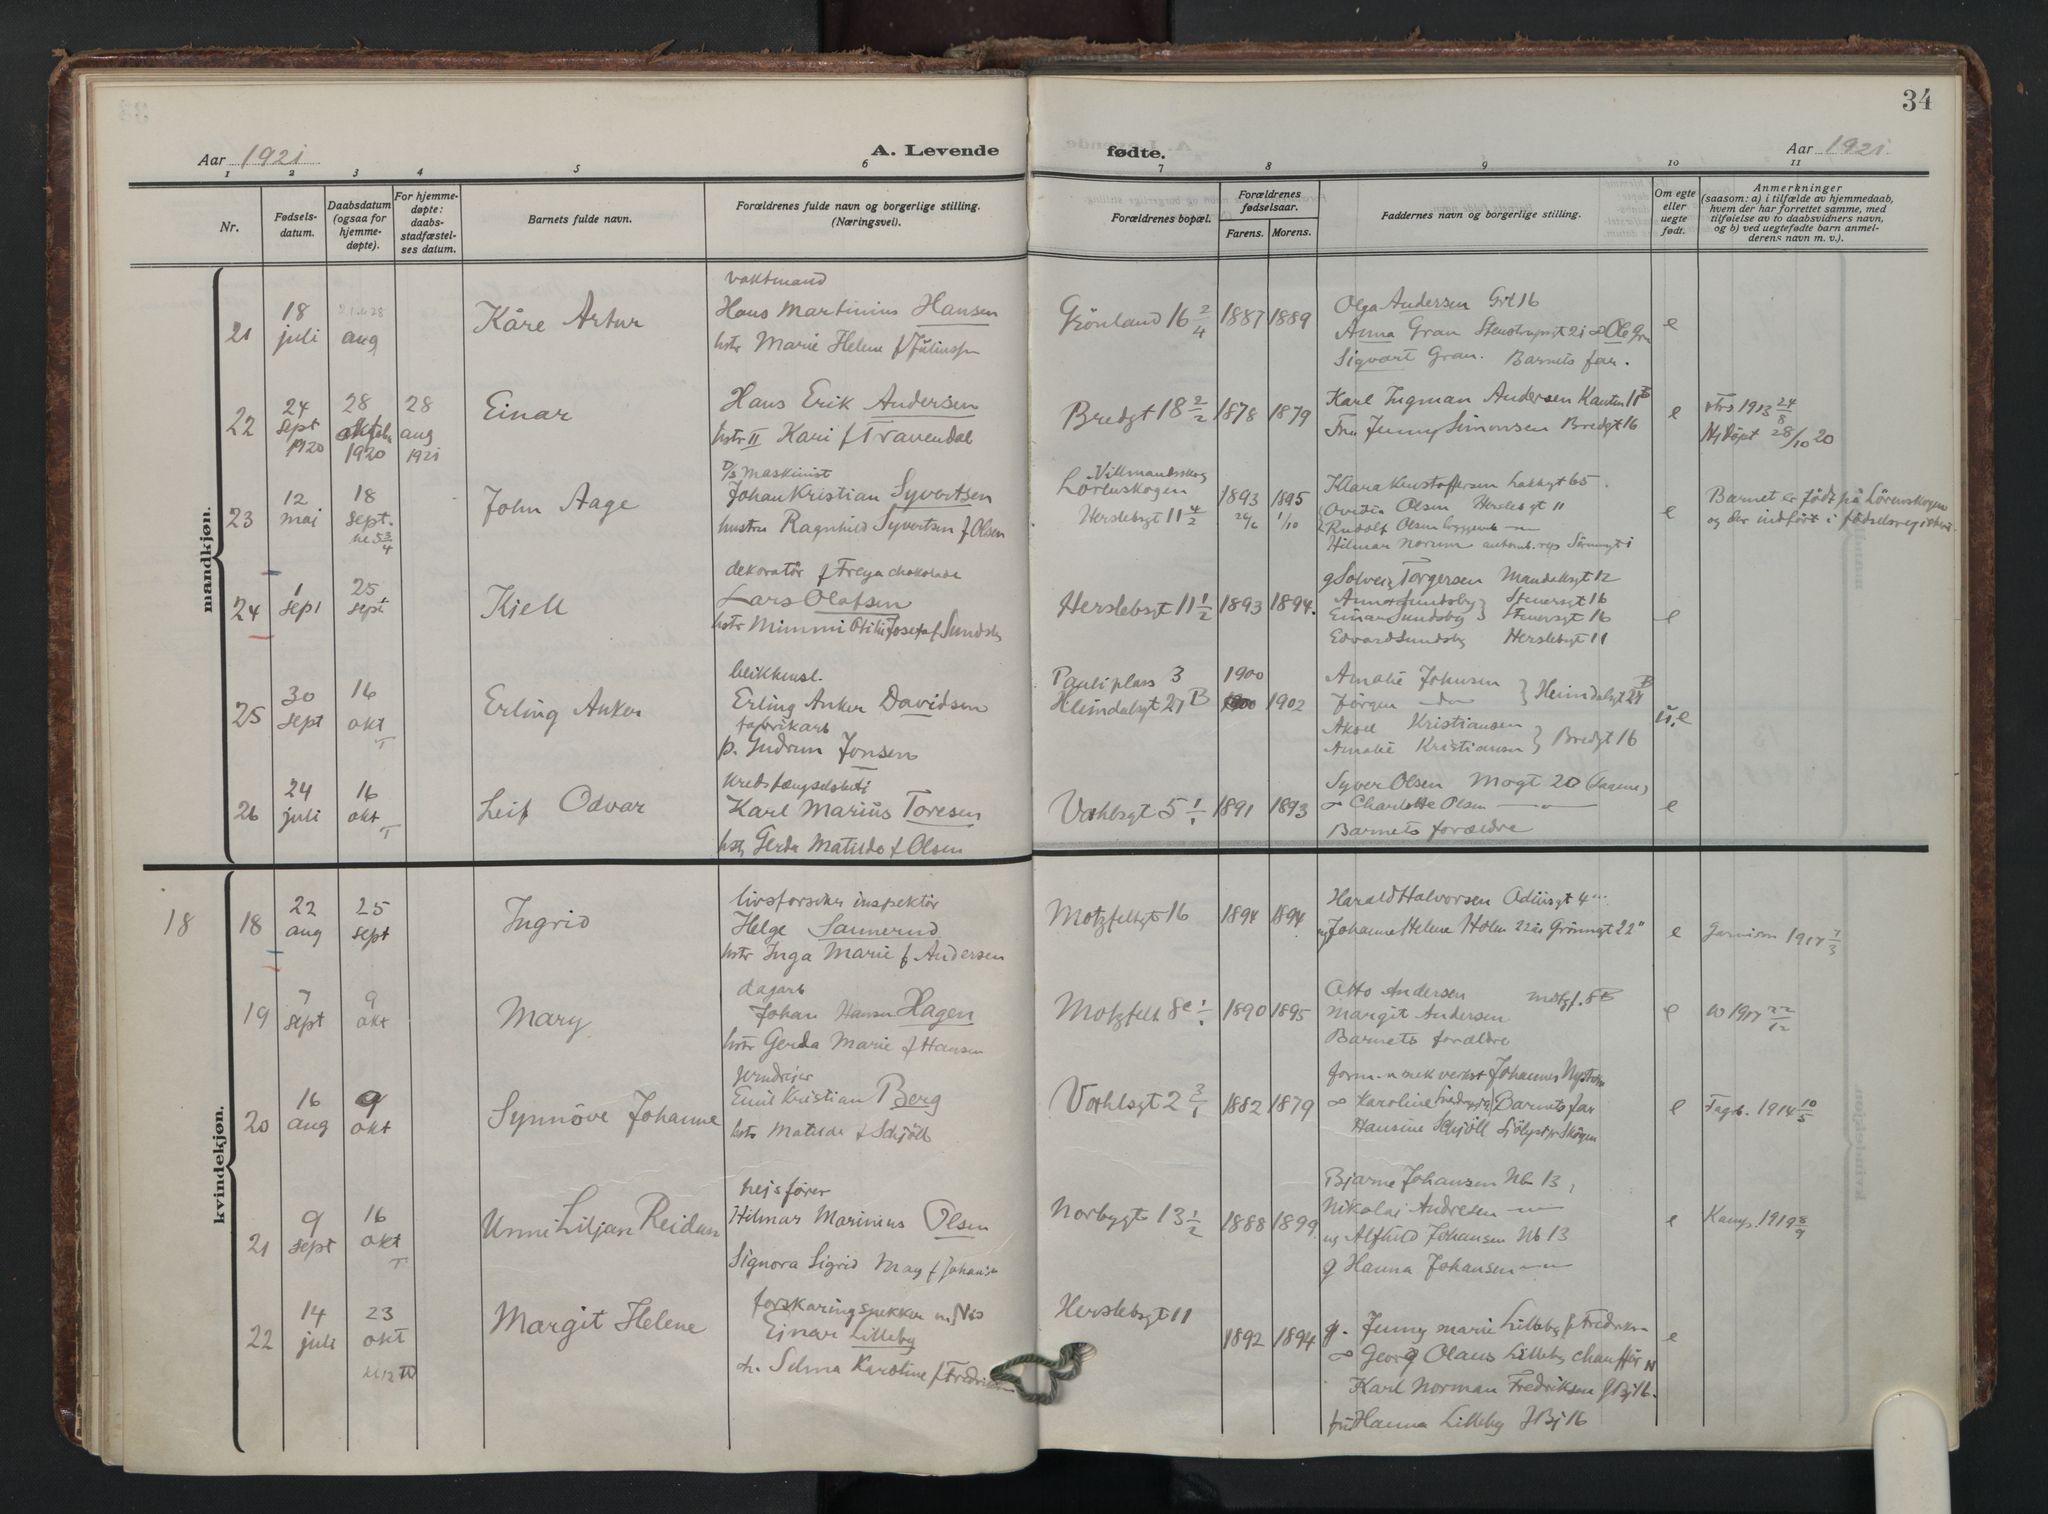 34
Aar 1921
A. Levende
fødte.
Aar 1921.
1 2 3 4 5 6 7 8 9 10 11
Nr.
Fødsels-
datum.
Daabsdatum
(ogsaa for
hjemme-
døpte).
For hjemme-
døpte:
daabs-
stadfæstel-
ses datum.
Barnets fulde navn.
Forældrenes fulde navn og borgerlige stilling.
(Næringsvei).
Forældrenes bopæl.
Forældrenes
fødselsaar.
Farens. Morens.
Faddernes navn og borgerlige stilling.
Om egte
eller
uegte
født.
Anmerkninger
(saasom: a) i tilfælde av hjemmedaab,
hvem der har forrettet samme, med
tilføielse av to daabsvidners navn,
og b) ved uegtefødte barn anmel-
derens navn m. v.).
mandkjøn.
21
18
juli
28
aug
Kåre Artur
vaktmand
Hans Martinius Hansen
hstr Marie Helene f
Grönland 16 2/4
1887 1889
Olga Andersen Grl 16
Anna Gran
Sigvart Gran. Barnets far.
e
22
24
sept
1920
28
1920
28
aug
1921
Einar
Hans Erik Andersen
hstr II Kari f Travendal
Bredgt 18 2/2
1878 1879
Karl Ingman Andersen
Fru Jenny Simonsen Bredgt 16
e
1913 24/8
Hj døpt 28/10 20
23
12
maj
18
sept.
kl 5 3/4
John Aage
D/s maskinist
Johan Kristian Syvertsen
hustru Ragnhild Syvertsen f Olsen
Villmandsskog
Lörenskogen
Herslebsgt 11 4/2
1893 1895
26/6 1/10
Klara Kristoffersen Lakkgt 65.
Ovidia Olsen Herslebgt 11
Rudolf Olsen
Hilmar Norum automb. rep
e
Barnet er født på Lørenskogen
og der indført i fødselsregisteret.
24
1
sept
25
sept
Kjell
dekoratör f Freya chokolade
Lars Olafsen
hstr Mimmi Otilie Josefa f Sundsby
Herslebsgt 11 1/2
1893 1894.
g Solveig Torgersen Mandalsgt 12
Anna Sundsby Stenersgt 16
Einar Sundsby Stenersgt 16
Edvard Sundsby Herslebgt 11
e
25
30
sept
16
okt
T
Erling Anker
blikkensl.
Erling Anker Davidsen
fabrikarb
p. Gudrun Jonsen
Pauli plass 3
Heimdalsgt 27 B
1900
1902
Amalie Johnsen
Jørgen do Heimdalsgt 27 B
Aksel Kristiansen
Amalie Kristiansen Bredgt 16
u.e
26
24
juli
16
okt
T
Leif Odvar
kredsfængselsbetj
Karl Marius Toresen
hstr Gerda Matilde f Olsen
Vahlsgt 5 1/1
1891 1893
Syver Olsen Mogt 20 (Sagene)
∞ Charlotte Olsen
Barnets forældre
e
kvindekjøn.
18
18
22
aug
25
sept
Ingrid
livsforsikr inspektör
Helge Sannerud
hstr Inga Marie f Andersen
Motzfeldtsgt 16
1894 1894
Harald Halvorsen Odinsgt 4
Johanne Helene Holm 22 år Grönnegt 22
e
Garnison 1917 7/3
19
7
sept
9
okt
Mary
dagarb
Johan Hansen Hagen
hstr Gerda Marie f Hansen
Motzfelt 8c 1/1
1890 1895
Otto Andersen motzf. 8B
Margit Andersen
Barnets forældre
e
1917 22/12
20
16
aug
9
okt
Synnöve Johanne
jerndrejer
Emil Kristian Berg
hstr Matilde f Schjöll
Vahlsgt 2 3/1
1882 1879
form. mek verkst Johannes Nyström
∞ Karoline Barnets far
Hansine Schjöll
e
Fagerb. 1914 10/5
21
9
sept
16
okt
T
Unni Liljan Reidun
hejsfører
Hilmar Marinius Olsen
Signora Sigrid May f Johansen
Norbygt 13 1/2
1888 1899
Bjarne Johansen Nb 13,
Nikolai Andresen
ug Alfhild Johansen Nb 13
g Hanna Johansen
e
Kamp. 1919 8/9
22
14
juli
23
okt
kl 12
Margit Helene
Einar Lilleby
h. Selma Karoline f Fredriksen
Herslebsgt 11
1892 1894
g. Jenny Marie Lilleby f Fredriksen
∞ Georg Olaus Lilleby chauffør
Karl Norman Fredriksen
fru Hanna Lilleby
e